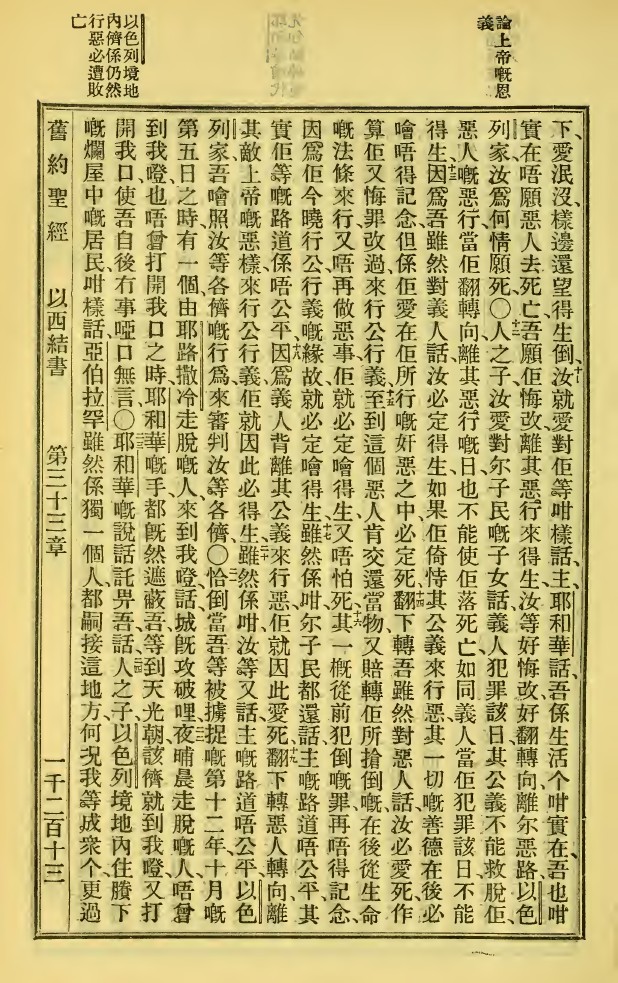 論上帝嘅恩
義
以色列境地
內儕係仍然
行惡必遭敗
亡
下、愛泯沒樣邊還望得生倒、十一汝就愛對佢等咁樣話、主耶和華話、吾係生活个咁實在、吾也咁
實在唔願惡人去死亡、吾願佢悔改離其惡行來得生、汝等好悔改好翻轉向離尔惡路、以色
列家汝爲何情願死〇十二人之子汝愛對尔子民嘅子女話、義人犯罪該日其公義不能救脫佢、
惡人嘅惡行當佢翻轉向離其惡行嘅日也不能使佢落死亡、如同義人當佢犯罪該日不能
得生、十三因爲吾雖然對義人話汝必定得生、如果佢倚恃其公義來行惡、其一切嘅善德在後必
噲唔得記念、但係佢愛在佢所行嘅奸惡之中必定死、十四翻下轉吾雖然對惡人話、汝必愛死、作
算佢又悔罪改過來行公行義、十五至到這個惡人肯交還當物、又賠轉佢所搶倒嘅、在後從生命
嘅法條來行、又唔再做惡事、佢就必定噲得生、又唔怕死、十六其一概從前犯倒嘅罪、再唔得記念、
因爲佢今曉行公行義嘅緣故、就必定噲得生、十七雖然係咁、尔子民都還話、主嘅路道唔公平、其
實佢等嘅路道係唔公平、十八因爲義人背離其公義來行惡、佢就因此愛死、十九翻下轉惡人轉向離
其敵上帝嘅惡樣來行公行義、佢就因此必得生、二十雖然係咁、汝等又話、主嘅路道唔公平、以色
列家吾噲照汝等各儕嘅行爲來審判汝等各儕〇二一恰倒當吾等被擄捉嘅第十二年十月嘅
第五日之時、有一個由耶路撒冷走脫嘅人、來到我䠀話、城旣攻破哩、二二夜晡晨走脫嘅人唔曾
到我䠀、也唔曾打開我口之時、耶和華嘅手都旣然遮蔽吾等到天光朝該儕就到我䠀、又打
開我口、使吾自後冇事啞口無言〇二三耶和華嘅說話託畀吾話、二四人之子、以色列境地內住賸下
嘅爛屋中嘅居民咁樣話、亞伯拉罕雖然係獨一個人、都嗣接這地方、何況我等成衆个、更過
舊約聖經　以西結書　第三十三章　一千二百十三